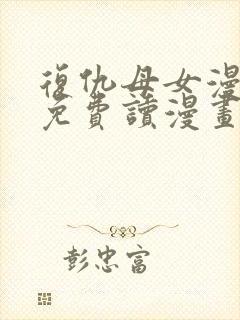 復仇母女漫
免費讀漫畫
彭忠富